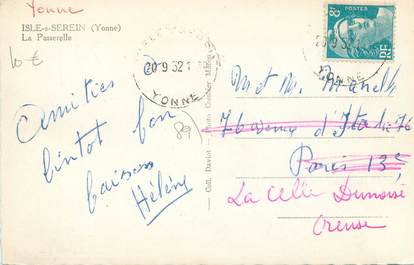 Yonne
ISLE-s-SEREIN (Yonne)
La Passerelle
10 €
20-9 52
YONNE
89
POSTES
8f
RF
20-9 52
YONNE
Amitiés
bientot bon
baisers
Hélène
Coll. Daviot
M et M.
76 avenue d'Italie 76
Paris 13e
La Celle Dunoise
Creuse